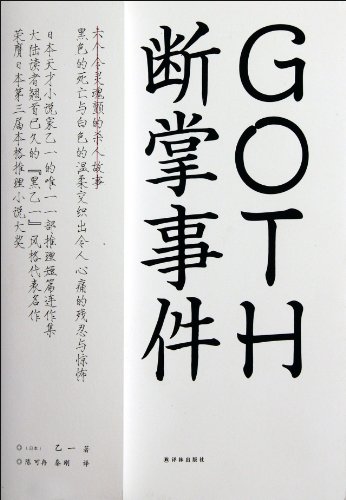 GOTH
断掌事件
译林出版社
六个令灵魂颤的杀人故事
黑色的死亡与白色的温柔交织出令人心痛的残忍与惊怖
日本天才小说家乙一的唯一一部推理短篇连作集
大陆读者翘首已久的『黑乙一』风格代表名作
荣膺日本第三届本格推理小说大奖
◎（日本） 乙一 著
◎陈可冉 秦刚 译